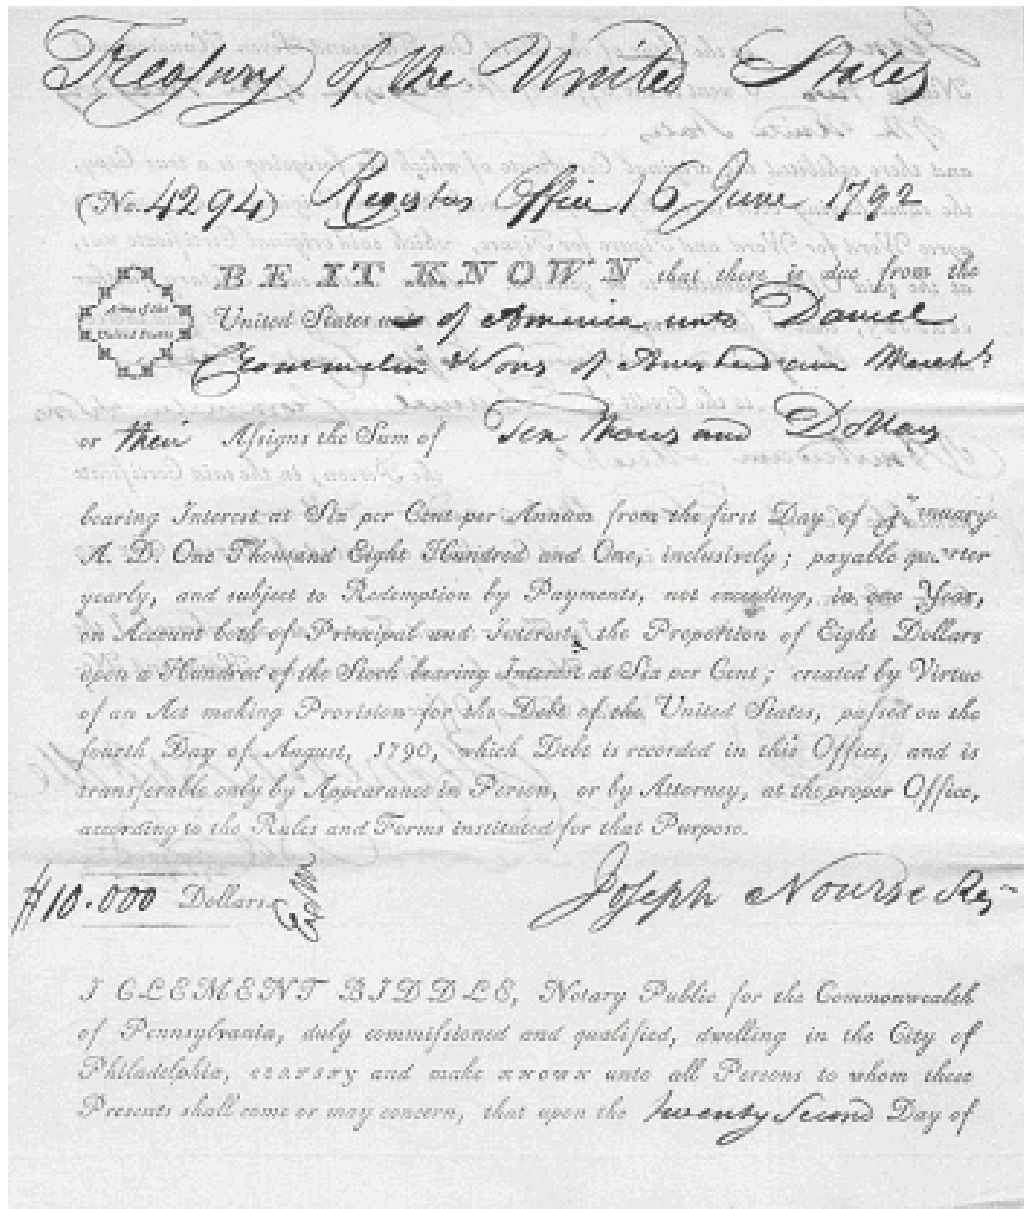 Treasury of the United States
(No. 4294) Register's Office 16 June 1792
BE IT KNOWN that there is due from the
Arms of the
United States
United States of America unto Daniel
Crommelin & Sons of Amsterdam Merchts
or their Assigns the Sum of Ten Thousand Dollars
bearing Interest at Six per Cent per Annum from the first Day of January
A. D. One Thousand Eight Hundred and One, inclusively; payable quarter
yearly, and subject to Redemption by Payments, not exceeding, in one Year,
on Account both of Principal and Interest, the Proportion of Eight Dollars
upon a Hundred of the Stock bearing Interest at Six per Cent; created by Virtue
of an Act making Provision for the Debt of the United States, passed on the
fourth Day of August, 1790, which Debt is recorded in this Office, and is
transferable only by Appearance in Person, or by Attorney, at the proper Office,
according to the Rules and Forms instituted for that Purpose.
10.000 Dollars.
Joseph Nourse Reg
I CLEMENT BIDDLE, Notary Public for the Commonwealth
of Pennsylvania, duly commissioned and qualified, dwelling in the City of
Philadelphia, CERTIFY and make KNOWN unto all Persons to whom these
Presents shall come or may concern, that upon the twenty Second Day of